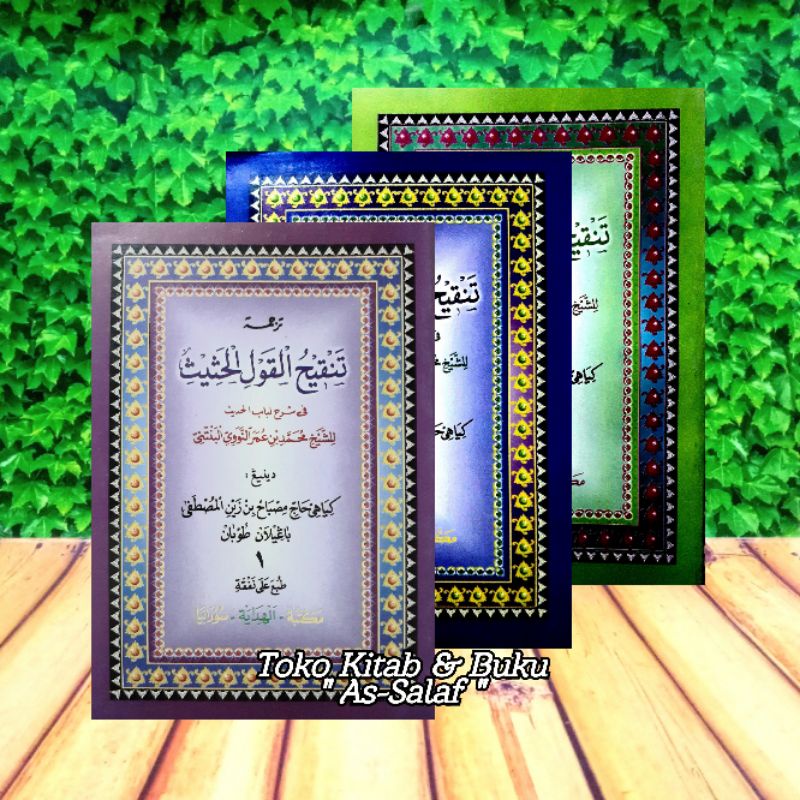 ترجمة
تَنْقِيْحُ الْقَوْلِ الْحَثِيْثِ
فى شرح لباب الحديث
لِلشَّيْخِ مُحَمَّدِ بْنِ عُمَرَ النَّوَوِيِّ الْبَنْتَنِيِّ
دينيڠ :
كياهى حاج مِصْبَاحْ بِنْ زَيْنِ الْمُصْطَفَى
باڠيلان طوبان
١
طبع على نفقة
مكتبة - الهداية - سورابايا
تَنْقِيْحُ
لِلشَّيْخِ مُحَمَّدِ
كياهى حاج
تَنْقِيْحُ
لِلشَّيْخِ
كياهى
Toko Kitab & Buku
" As-Salaf "